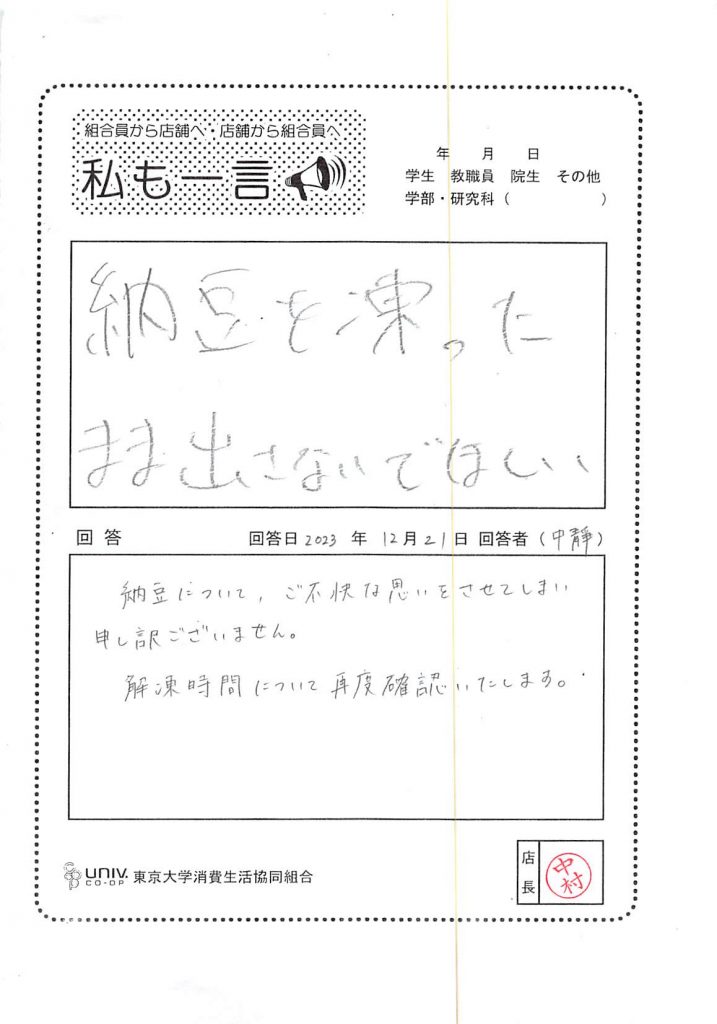 組合員から店舗へ・店舗から組合員へ
私も一言
年 月 日
学生 教職員 院生 その他
学部・研究科（ ）
納豆を凍った
まま出さないでほしい
回答 回答日 2023 年 12月 21日 回答者（中靜）
納豆について、ご不快な思いをさせてしまい
申し訳ございません。
解凍時間について再度確認いたします。
UNIV.
CO-OP
東京大学消費生活協同組合
店長
中村